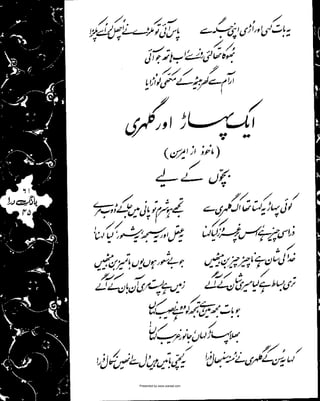 یہ بات کہی اور اڑی اپنی جگہ سے پاس آئی تو مکڑے نے اچھل کر اسے پکڑا
بھوکا تھا کئی روز سے اب ہاتھ جو آئی
آرام سے گھر بیٹھ کے مکھی کو اڑایا
ایک پہاڑ اور گلہری
(ماخوذ از ایمرسن)
بچوں کے لیے
کوئی پہاڑ یہ کہتا تھا اک گلہری سے تجھے ہو شرم تو پانی میں جا کے ڈوب مرے
ذرا سی چیز ہے اس پر غرور کیا کہنا یہ عقل اور یہ سمجھ یہ شعور کیا کہنا
خدا کی شان ہے ناچیز چیز بن بیٹھیں جو بے شعور ہوں یوں باتمیز بن بیٹھیں
تری بساط ہے کیا میری شان کے آگے زمیں ہے پست مری آن بان کے آگے
جو بات مجھ میں ہے تجھ کو وہ ہے نصیب کہاں
بھلا پہاڑ کہاں جانور غریب کہاں
کہا یہ سن کے گلہری نے منہ سنبھال ذرا یہ کچی باتیں ہیں دل سے انھیں نکال ذرا
بانگ درا
Presented by www.ziaraat.com